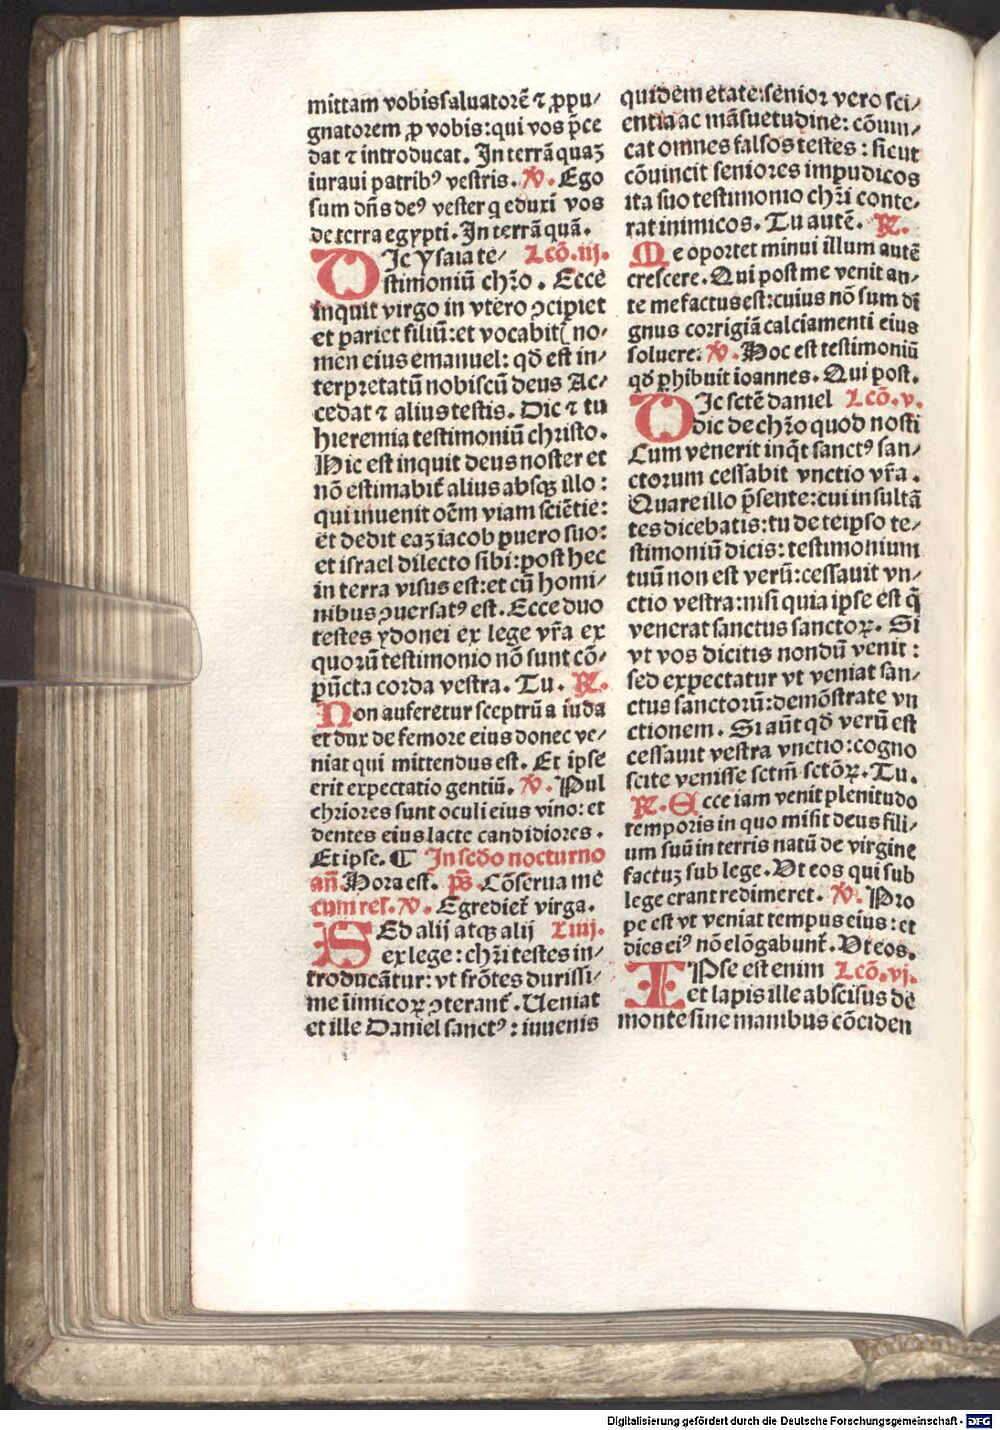 mittam vobis saluatorē ⁊ ꝓpu/
gnatorem ꝓ vobis: qui vos p̄ce
dat ⁊ introducat. In terrā quaꝫ
iuraui patribꝰ vestris. ℣. Ego
sum dn̄s deꝰ vester q eduxi vos
de terra egypti. In terrā quā.
DIc ysaia te/ Lcō. iij.
stimoniū chr̄o. Ecce
inquit virgo in vtero ↄcipiet
et pariet filiū: et vocabit̄ no/
men eius emanuel: qď est in/
terpretatū nobiscū deus Ac/
cedat ⁊ alius testis. Dic ⁊ tu
hieremia testimoniū christo.
Hic est inquit deus noster et
nō estimabit̄ alius absqꝫ illo:
qui inuenit oēm viam sciētie:
et dedit eaꝫ iacob puero suo:
et israel dilecto sibi: post hec
in terra visus est: et cū homi/
nibus ↄuersatꝰ est. Ecce duo
testes ydonei ex lege vr̄a ex
quorū testimonio nō sunt cō/
pūcta corda vestra. Tu. ℟.
Non auferetur sceptrū a iuda
et dux de femore eius donec ve/
niat qui mittendus est. Et ipse
erit expectatio gentiū. ℣. Pul
chriores sunt oculi eius vino: et
dentes eius lacte candidiores.
Et ipse. ¶ In scďo nocturno
añ. Hora est. ps̄. Cōserua me
cum rel̄. ℣. Egrediet̄ virga.
SEd alij atqꝫ alij L. iiij.
ex lege: chr̄i testes in/
troducātur: vt frōtes durissi/
me īimicoꝝ ↄterant̄. Ueniat
et ille Daniel sanctꝰ: iuuenis
quidem etate: senior vero sci/
entia ac māsuetudine: cōuin/
cat omnes falsos testes: sicut
cōuincit seniores impudicos
ita suo testimonio chr̄i conte/
rat inimicos. Tu autē. ℟.
Me oportet minui illum autē
crescere. Qui post me venit an/
te me factus est: cuius nō sum di
gnus corrigiā calciamenti eius
soluere. ℣. Hoc est testimoniū
qď phibuit ioannes. Qui post.
DIc sctē daniel Lcō. v.
dic de chr̄o quod nosti
Cum venerit inqt̄ sanctꝰ san/
ctorum cessabit vnctio vr̄a.
Quare illo p̄sente: cui insultā
tes dicebatis: tu de teipso te/
stimoniū dicis: testimonium
tuū non est verū: cessauit vn/
ctio vestra: nisi quia ipse est q̄
venerat sanctus sanctoꝝ. Si
vt vos dicitis nondū venit:
sed expectatur vt veniat san/
ctus sanctorū: demōstrate vn
ctionem. Si aūt qď verū est
cessauit vestra vnctio: cogno
scite venisse sctm̄ sctōꝝ. Tu.
℟. Ecce iam venit plenitudo
temporis in quo misit deus fili/
um suū in terris natū de virgine
factuꝫ sub lege. Vt eos qui sub
lege erant redimeret. ℣. Pro
pe est vt veniat tempus eius: et
dies eiꝰ nō elōgabunt̄. Vt eos.
IPse est enim Lcō. vj.
et lapis ille abscisus de
monte sine manibus cōciden
Digitalisierung gefördert durch die Deutsche Forschungsgemeinschaft - DFG